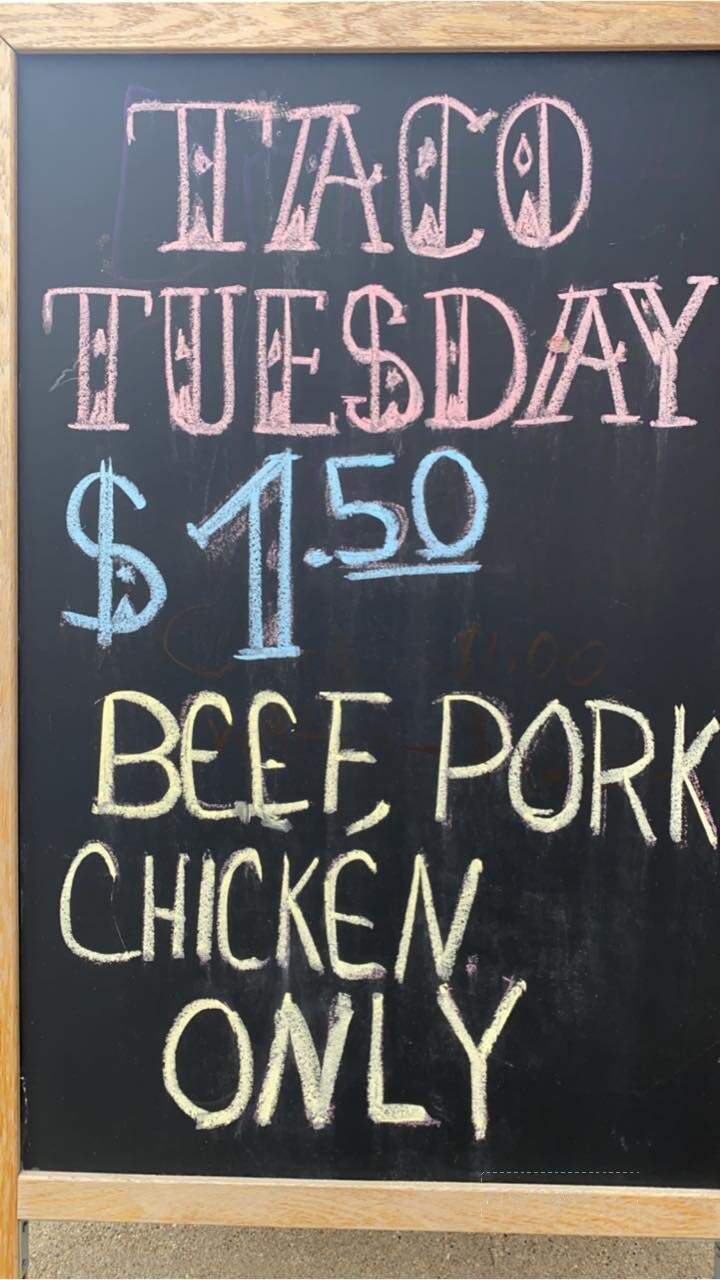 TACO
TUESDAY
$1.50
BEEF, PORK
CHICKEN
ONLY